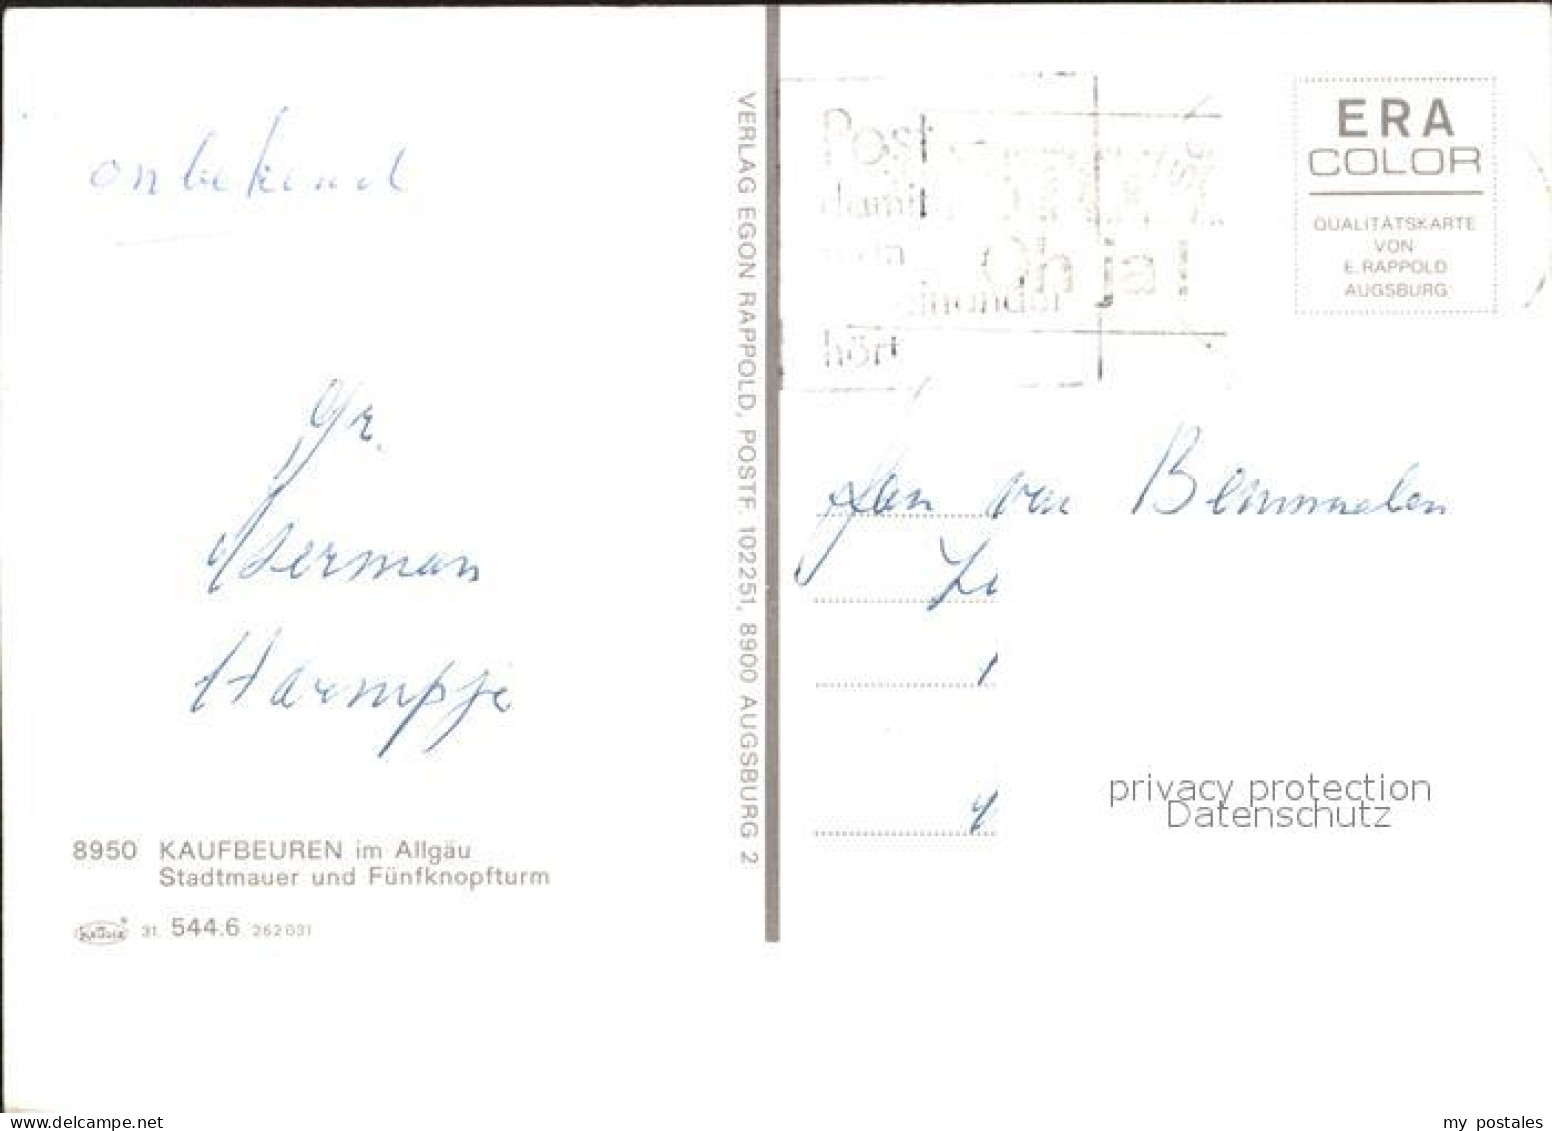 onbekend
Gr.
Herman
Harmpje
8950 KAUFBEUREN im Allgäu
Stadtmauer und Fünfknopfturm
3t. 544.6 262031
VERLAG EGON RAPPOLD, POSTF. 102251, 8900 AUGSBURG 2
Post
damit
man
einander
hört
Oh ja!
ERA
COLOR
QUALITÄTSKARTE
VON
E. RAPPOLD
AUGSBURG
Jan van Bemmelen
privacy protection
Datenschutz
www.delcampe.net
my_postales